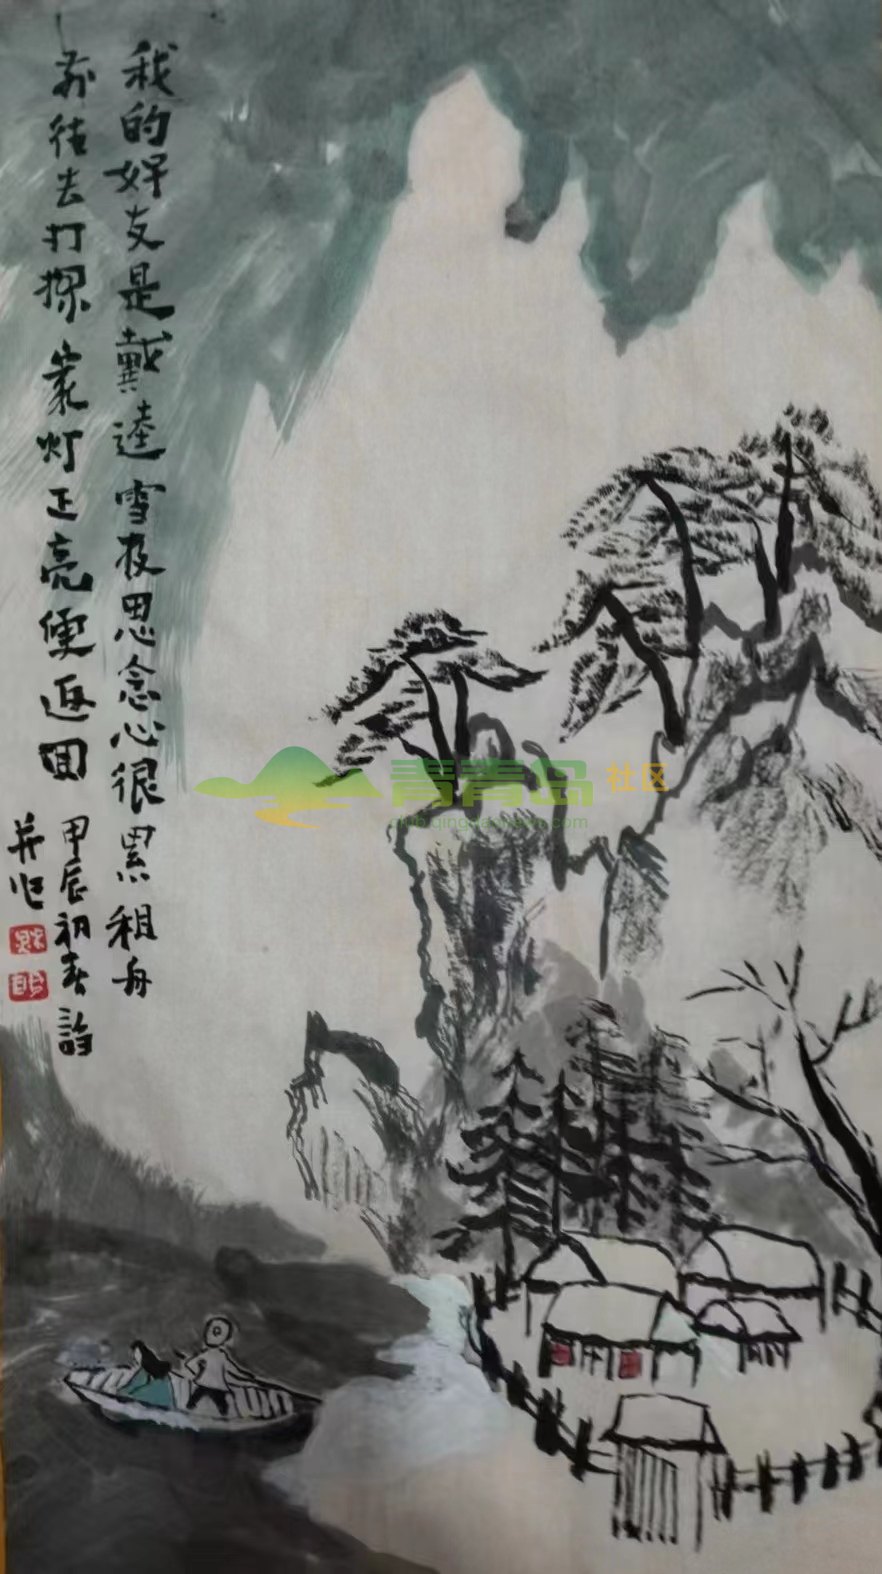 我的好友是戴逵雪夜思念心很累租舟
前往去打探家灯正亮便返回
甲辰初春詩
并作
青青岛社区
club.qingdaonews.com